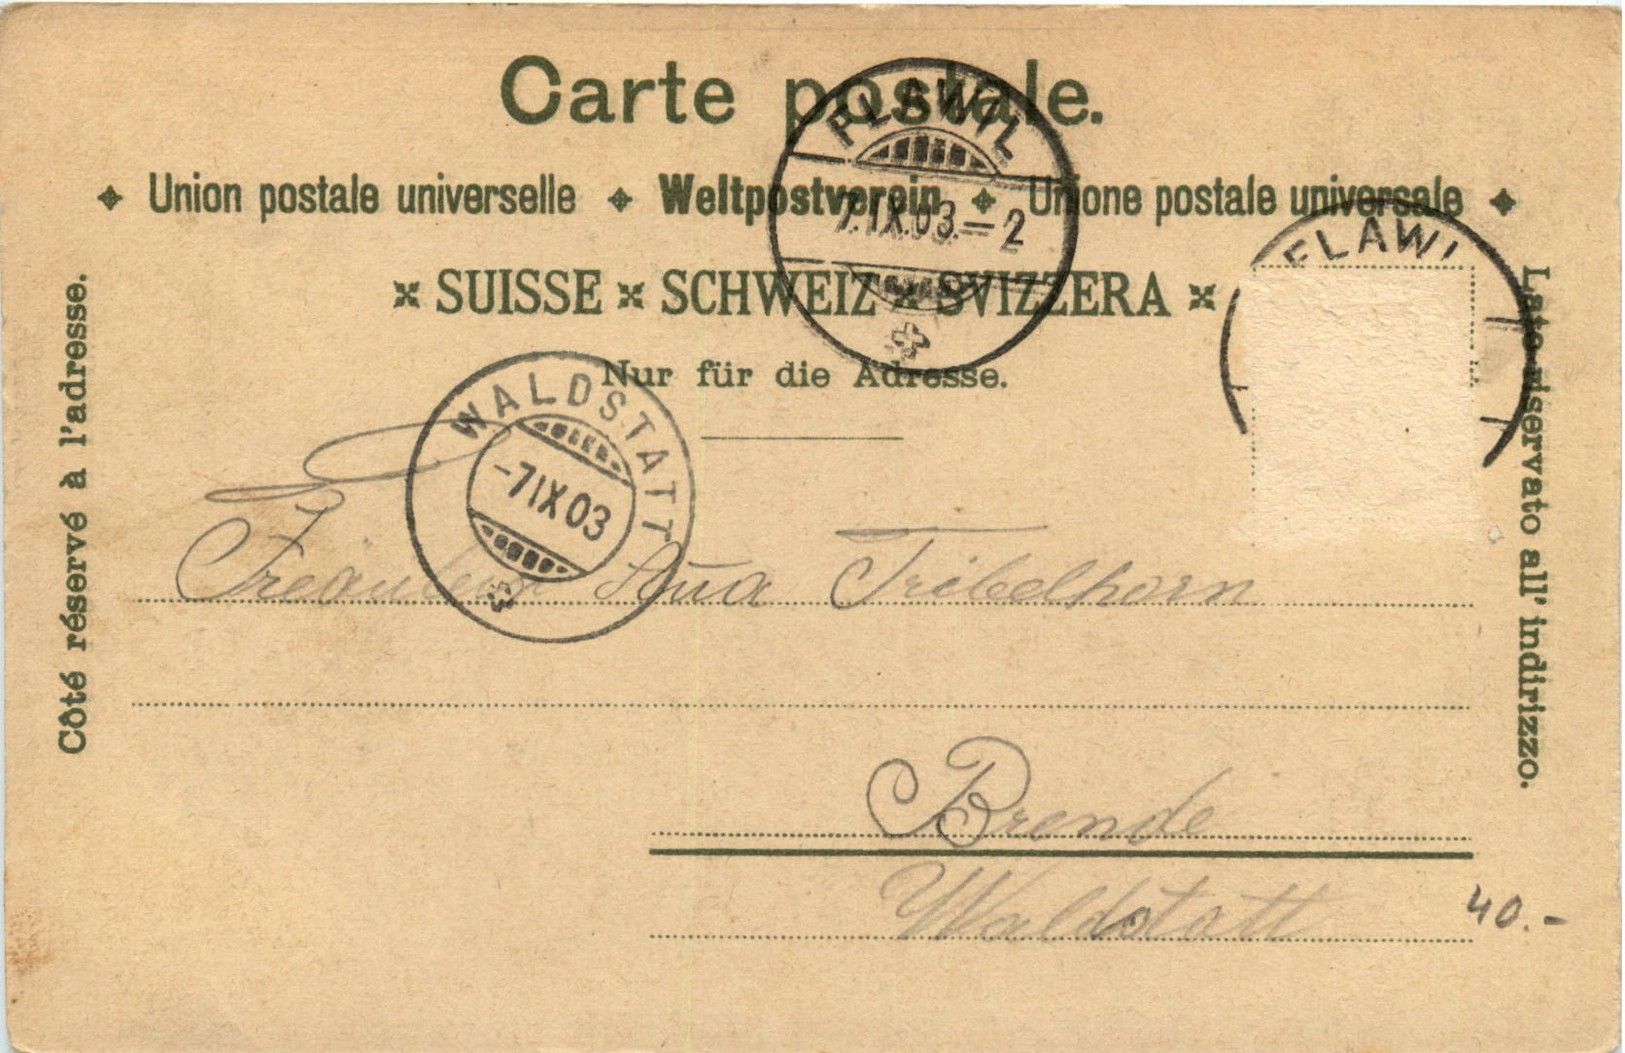 Carte postale.
Union postale universelle Weltpostverein Unione postale universale
SUISSE SCHWEIZ SVIZZERA
Nur für die Adresse.
Côté réservé à l'adresse.
Lato riservato all' indirizzo.
FLAWIL
7.IX.03.-2
FLAWI
WALDSTATT
-7 IX 03
Fräulein Tribelhorn
Waldstatt
40.-